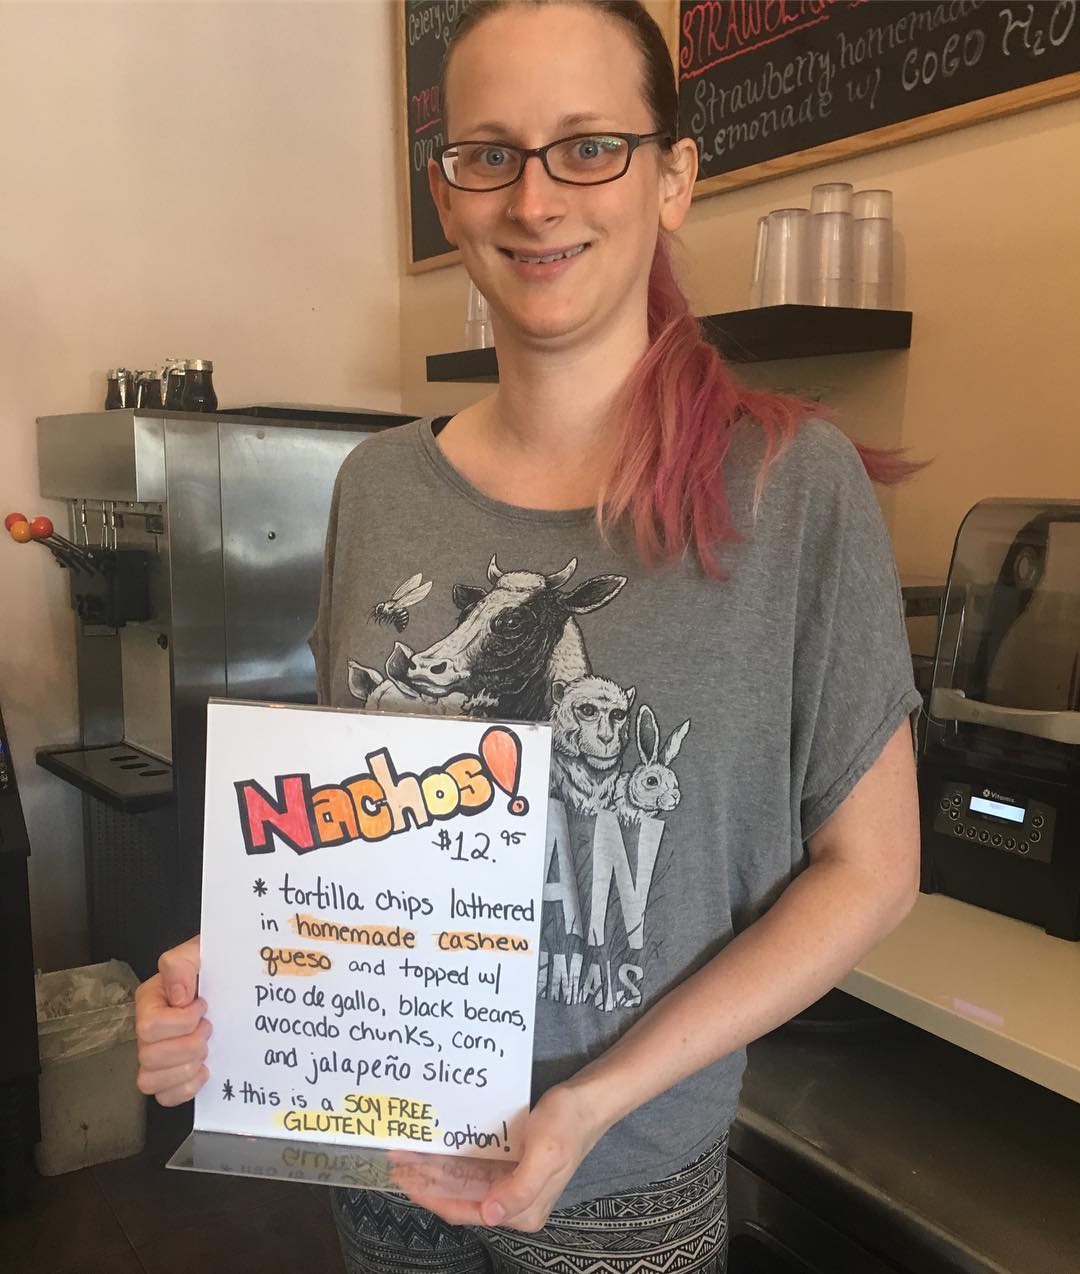 Celery, Gr
STRAWBER
Strawberry, homemade
Lemonade w/ COCO H2O
TRO
Oran
Nachos!
$12.95
* tortilla chips lathered
in homemade cashew
queso and topped w/
pico de gallo, black beans,
avocado chunks, corn,
and jalapeño slices
* this is a SOY FREE,
GLUTEN FREE option!
AN
IMALS
Vitamix